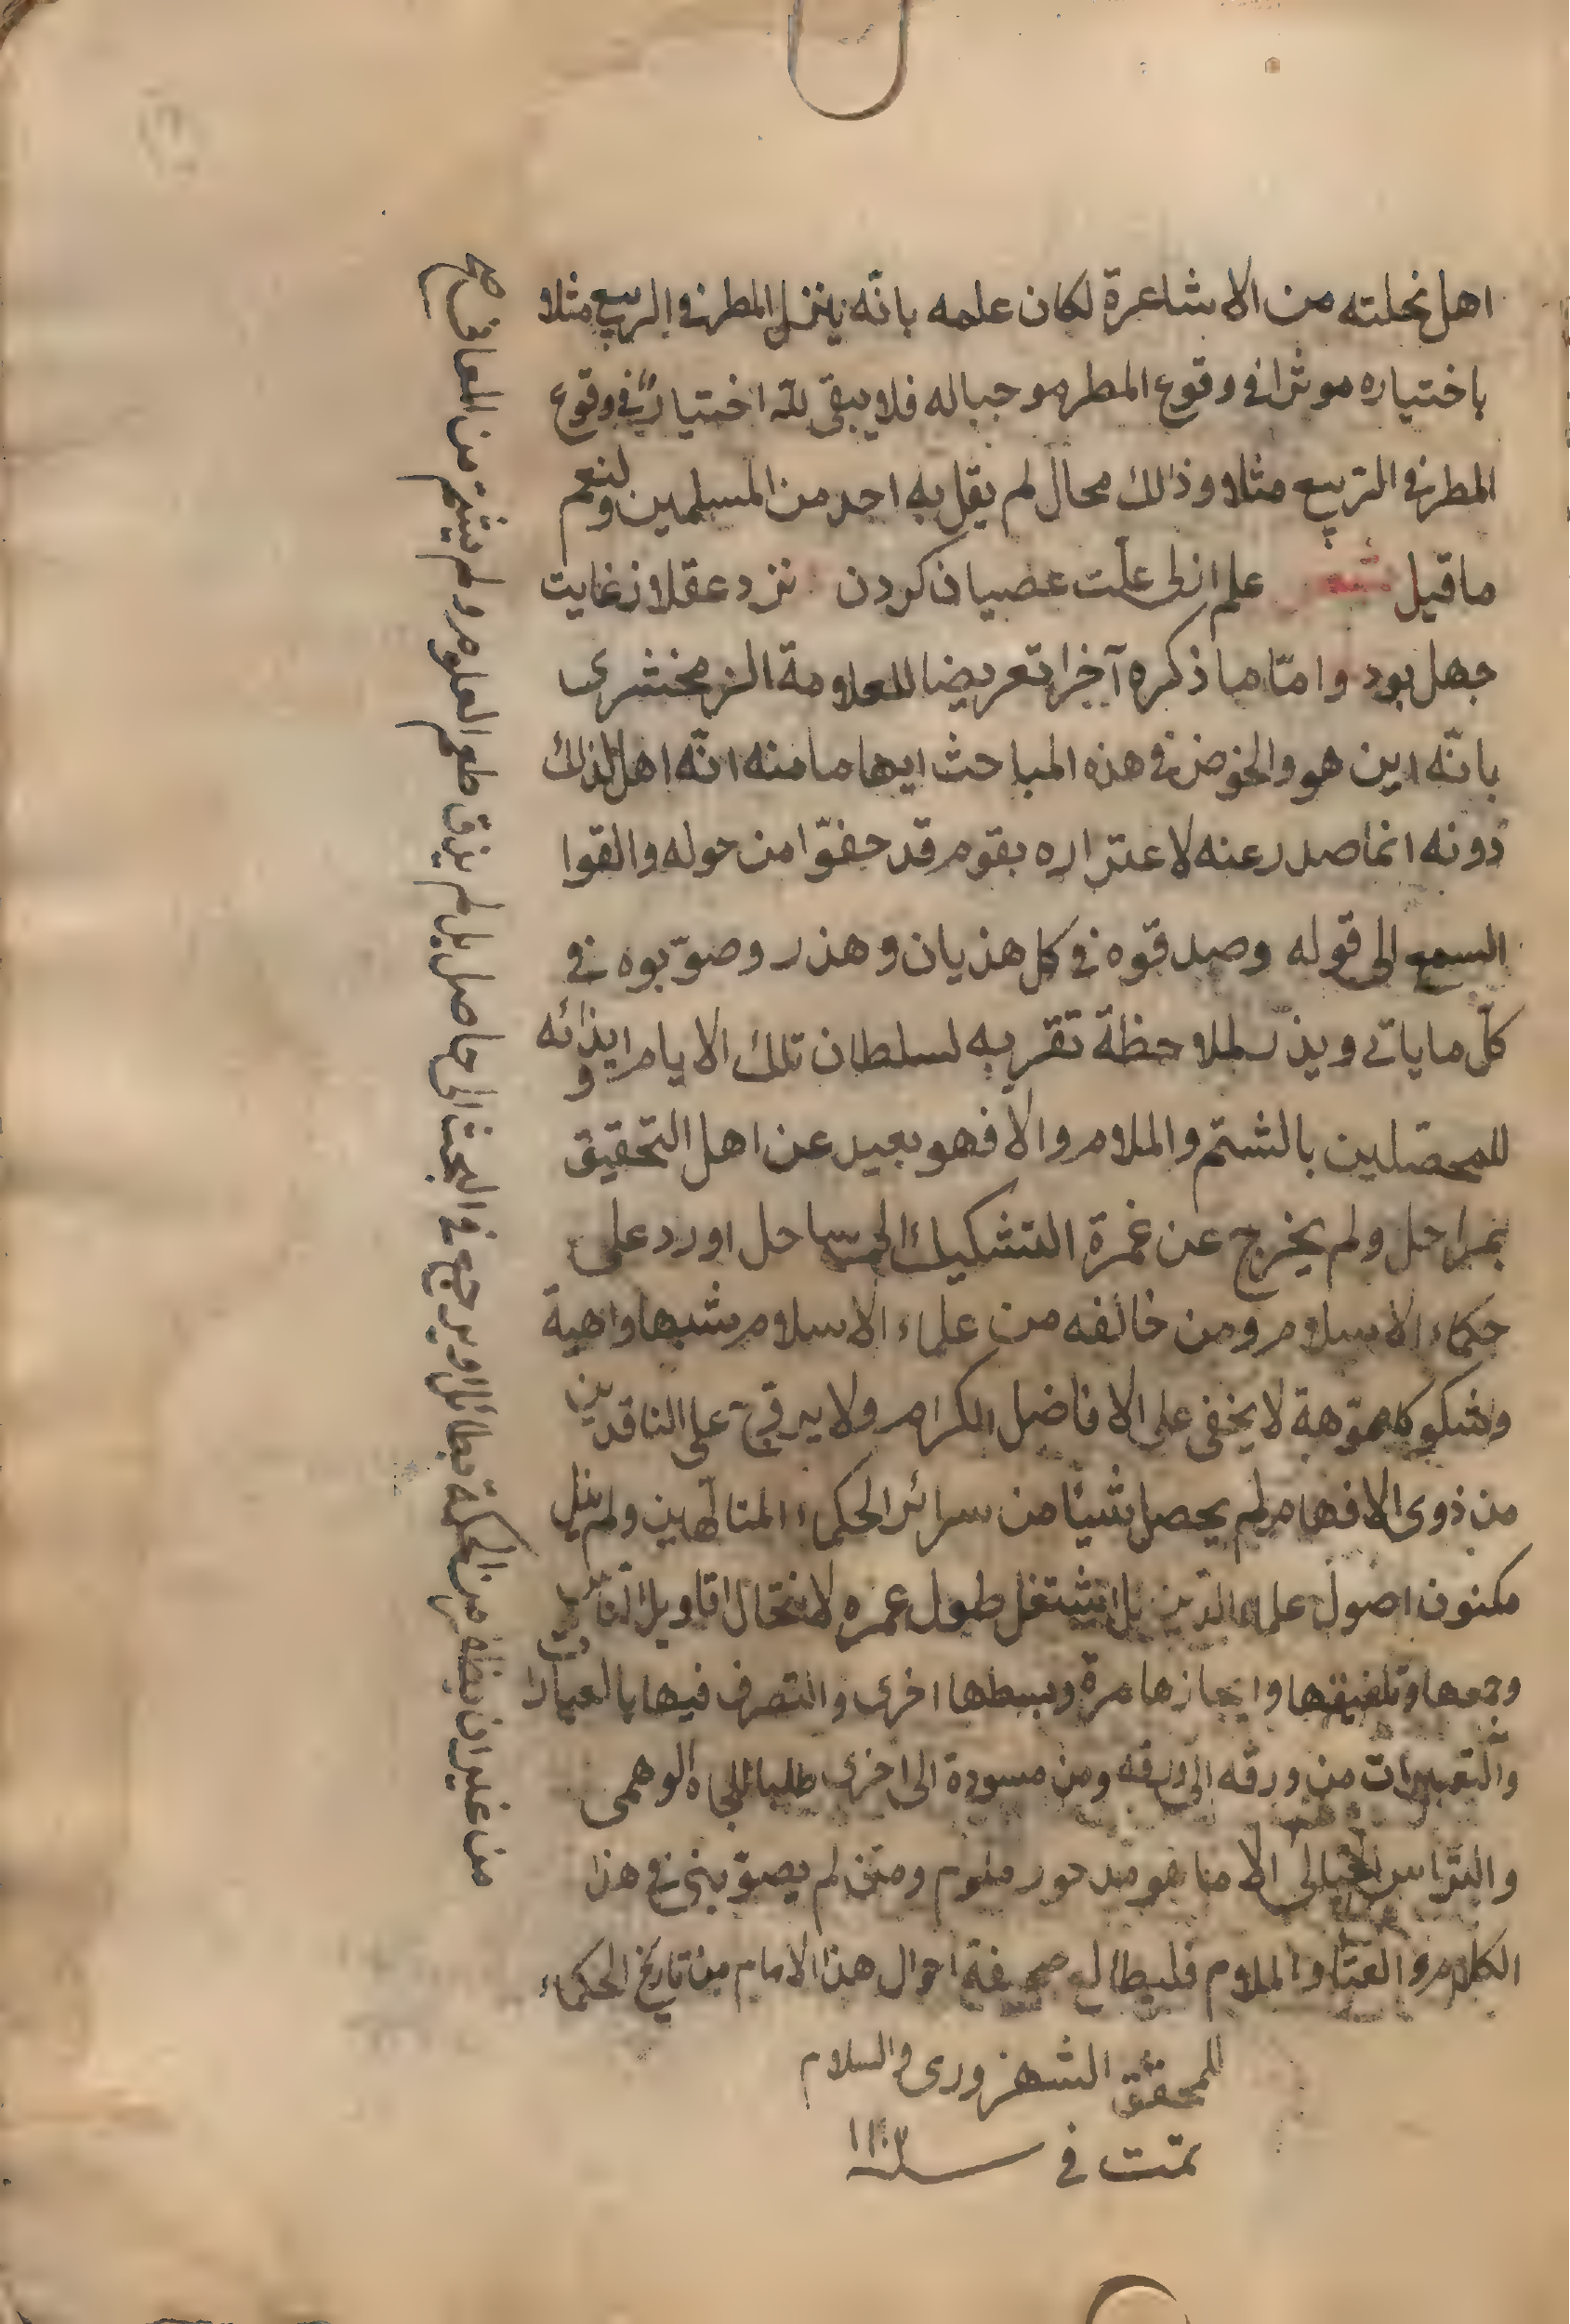 اهل نحلته من الاشاعرة لكان علمه بانّه ينزل المطر فى الربيع مثلا
باختياره موثرا فى وقوع المطر موجبا له فلا يبقى لله اختيار فى وقوع
المطر فى الربيع مثلا وذلك محال لم يقل به احد من المسلمين ولنعم
ما قيل شعر علم ازلى علّت عصيان كردن نزد عقلا ز غايت
جهل بود وامّا ما ذكره آخرا تعريضا للعلامة الزمخشرى
بانّه اين هو والخوض فى هذه المباحث ايهاما منه انّه اهل لذلك
دونه انما صدر عنه لاغتراره بقوم قد حفّوا من حوله والقوا
السمع الى قوله وصدقوه فى كل هذيان وهذر وصوّبوه فى
كلّ ما ياتى ويذر لملاحظة تقربه لسلطان تلك الايام وايذائه
للمحصّلين بالشتم والملام والا فهو بعيد عن اهل التحقيق
بمراحل ولم يخرج عن غمرة التشكيك الى الساحل اورد على
حكماء الاسلام ومن خالفه من علماء الاسلام شبها واهية
وشكوكا مموّهة لا يخفى على الافاضل الكرام ولا يروّج على الناقدين
من ذوى الافهام لم يحصل شيئا من سرائر الحكماء المتالّهين ولم ينل
مكنون اصول علماء الدّين بل اشتغل طول عمره لانتحال اقاويل النّاس
وجمعها وتلفيقها وايجازها مرة وبسطها اخرى والتصرف فيها بالعبارات
والتعبيرات من ورقه الى ورقه ومن مسودة الى اخرى طلبا للجاه الوهمى
والتراس الخيالى الا ما هو مدحور ملوم ومن لم يصوّبنى فى هذا
الكلام والعتاب والملام فليطالع صحيفة احوال هذا الامام من تاريخ الحكماء
للمحقق الشهرزورى والسلام
تمّت فى سنة ١١٠٣
من غير ان يظفر من الحكمة بطائل او يرجع فى البحث الى حاصل بل لم يذق طعم العلوم ولم يشمّ من المعارف صح